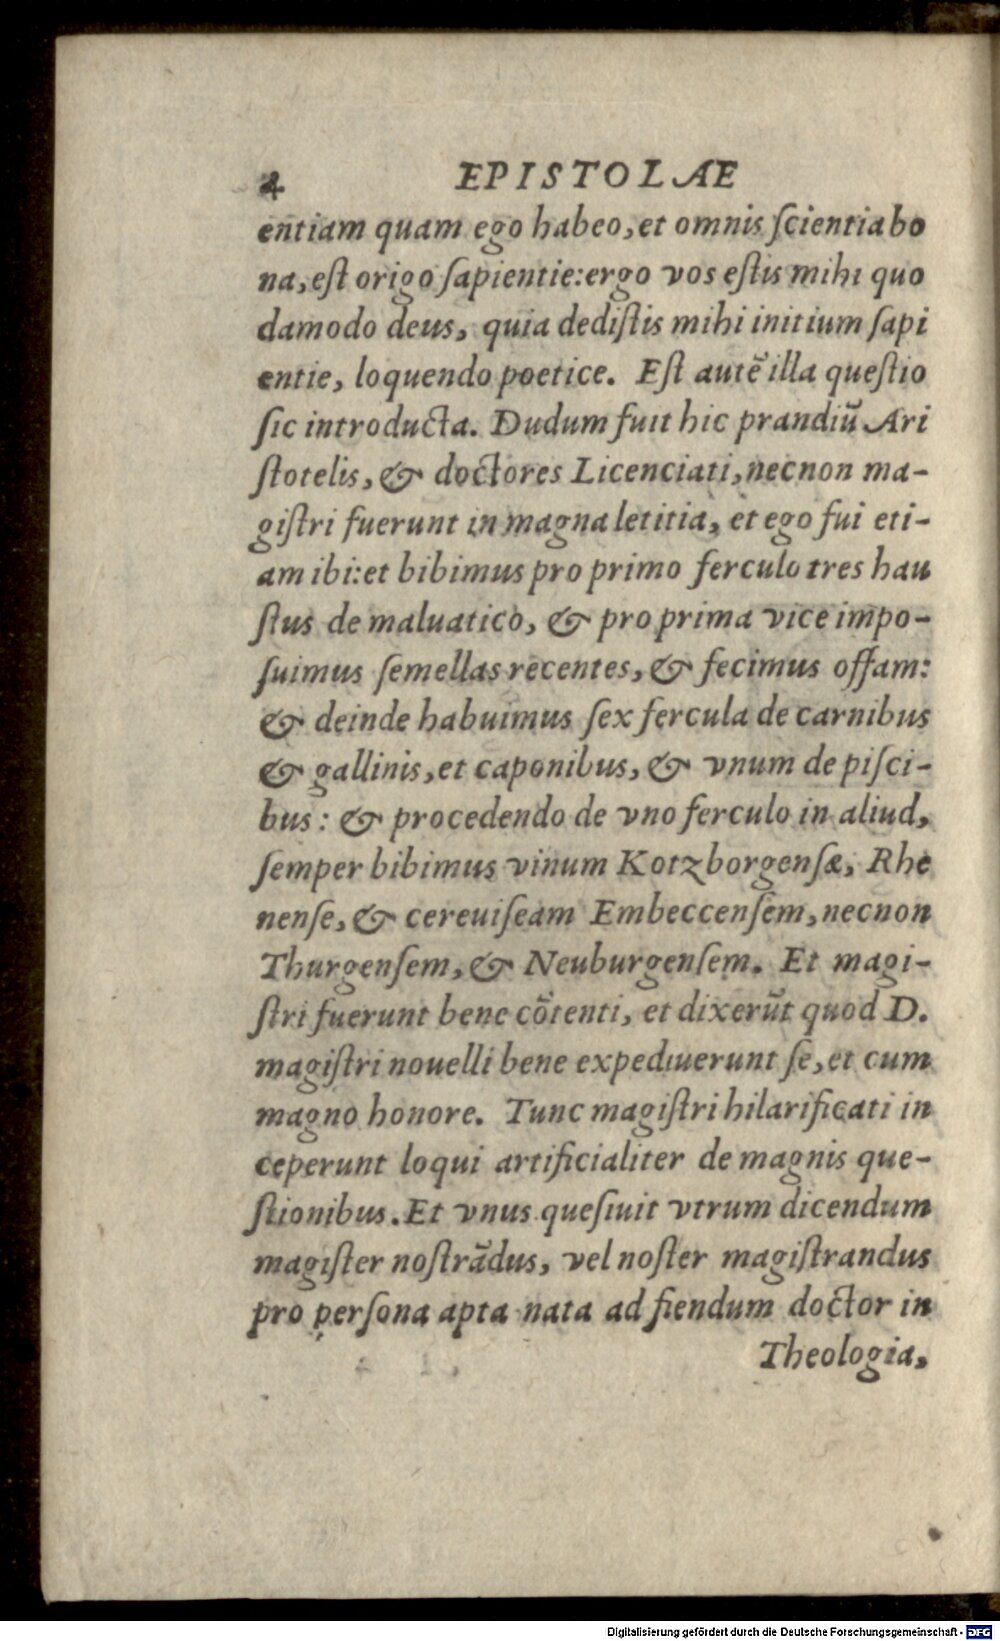 4 EPISTOLAE
entiam quam ego habeo, et omnis ſcientia bo
na, eſt origo ſapientie: ergo vos eſtis mihi quo
damodo deus, quia dediſtis mihi initium ſapi
entie, loquendo poetice. Eſt autẽ illa queſtio
ſic introducta. Dudum fuit hic prandiũ Ari
ſtotelis, & doctores Licenciati, necnon ma-
giſtri fuerunt in magna letitia, et ego fui eti-
am ibi: et bibimus pro primo ferculo tres hau
ſtus de maluatico, & pro prima vice impo-
ſuimus ſemellas recentes, & fecimus offam:
& deinde habuimus ſex fercula de carnibus
& gallinis, et caponibus, & vnum de piſci-
bus: & procedendo de vno ferculo in aliud,
ſemper bibimus vinum Kotzborgenſæ, Rhe
nenſe, & cereuiſeam Embeccenſem, necnon
Thurgenſem, & Neuburgenſem. Et magi-
ſtri fuerunt bene cõtenti, et dixerũt quod D.
magiſtri nouelli bene expediuerunt ſe, et cum
magno honore. Tunc magiſtri hilarificati in
ceperunt loqui artificialiter de magnis que-
ſtionibus. Et vnus queſiuit vtrum dicendum
magiſter noſtrãdus, vel noſter magiſtrandus
pro perſona apta nata ad fiendum doctor in
Theologia,
Digitalisierung gefördert durch die Deutsche Forschungsgemeinschaft - DFG